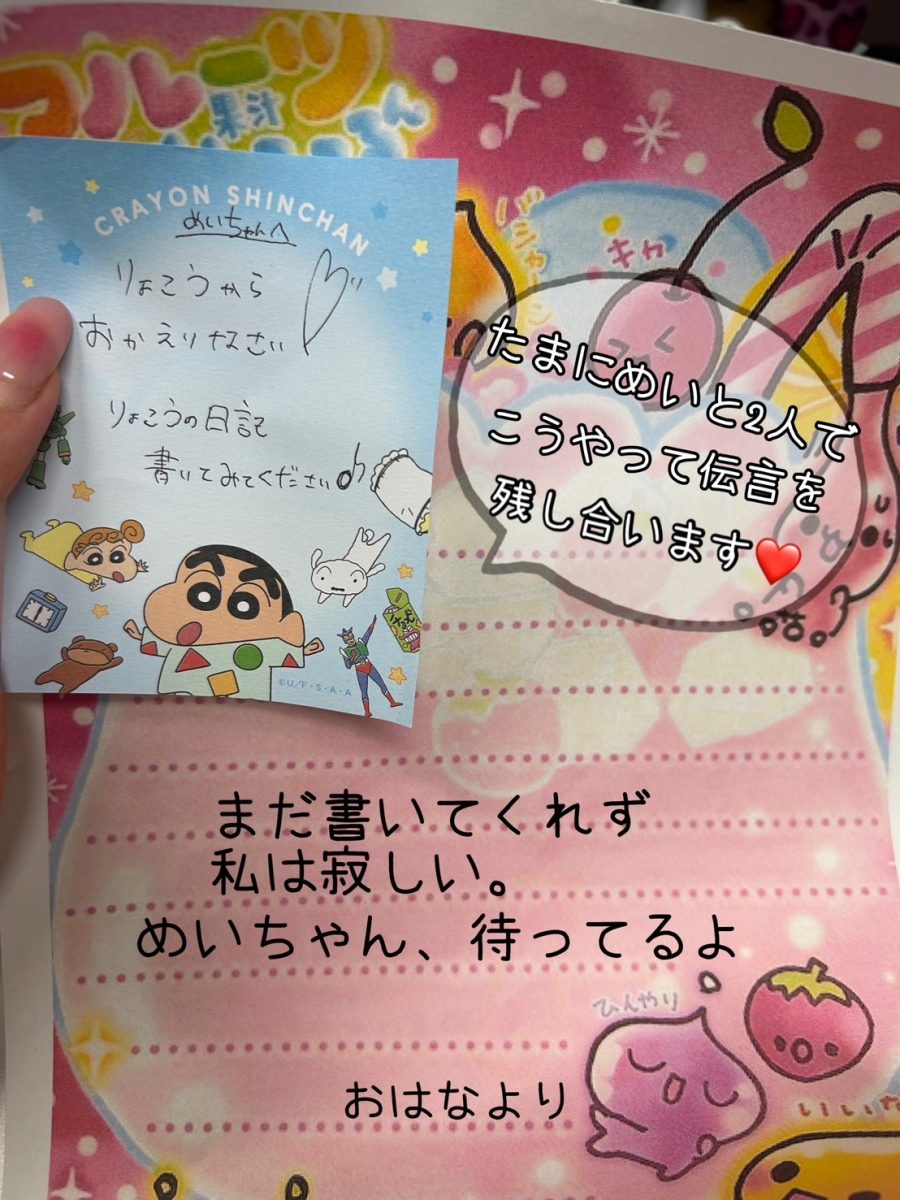 フルーツ
果汁
CRAYON SHINCHAN
めいちゃんへ
りょこうから
おかえりなさい
りょこうの日記
書いてみてください♪
©U/F・S・A・A
バシャーン
キャ
たまにめいと2人で
こうやって伝言を
残し合います❤️
まだ書いてくれず
私は寂しい。
めいちゃん、待ってるよ
ひんやり
おはなより
いいな